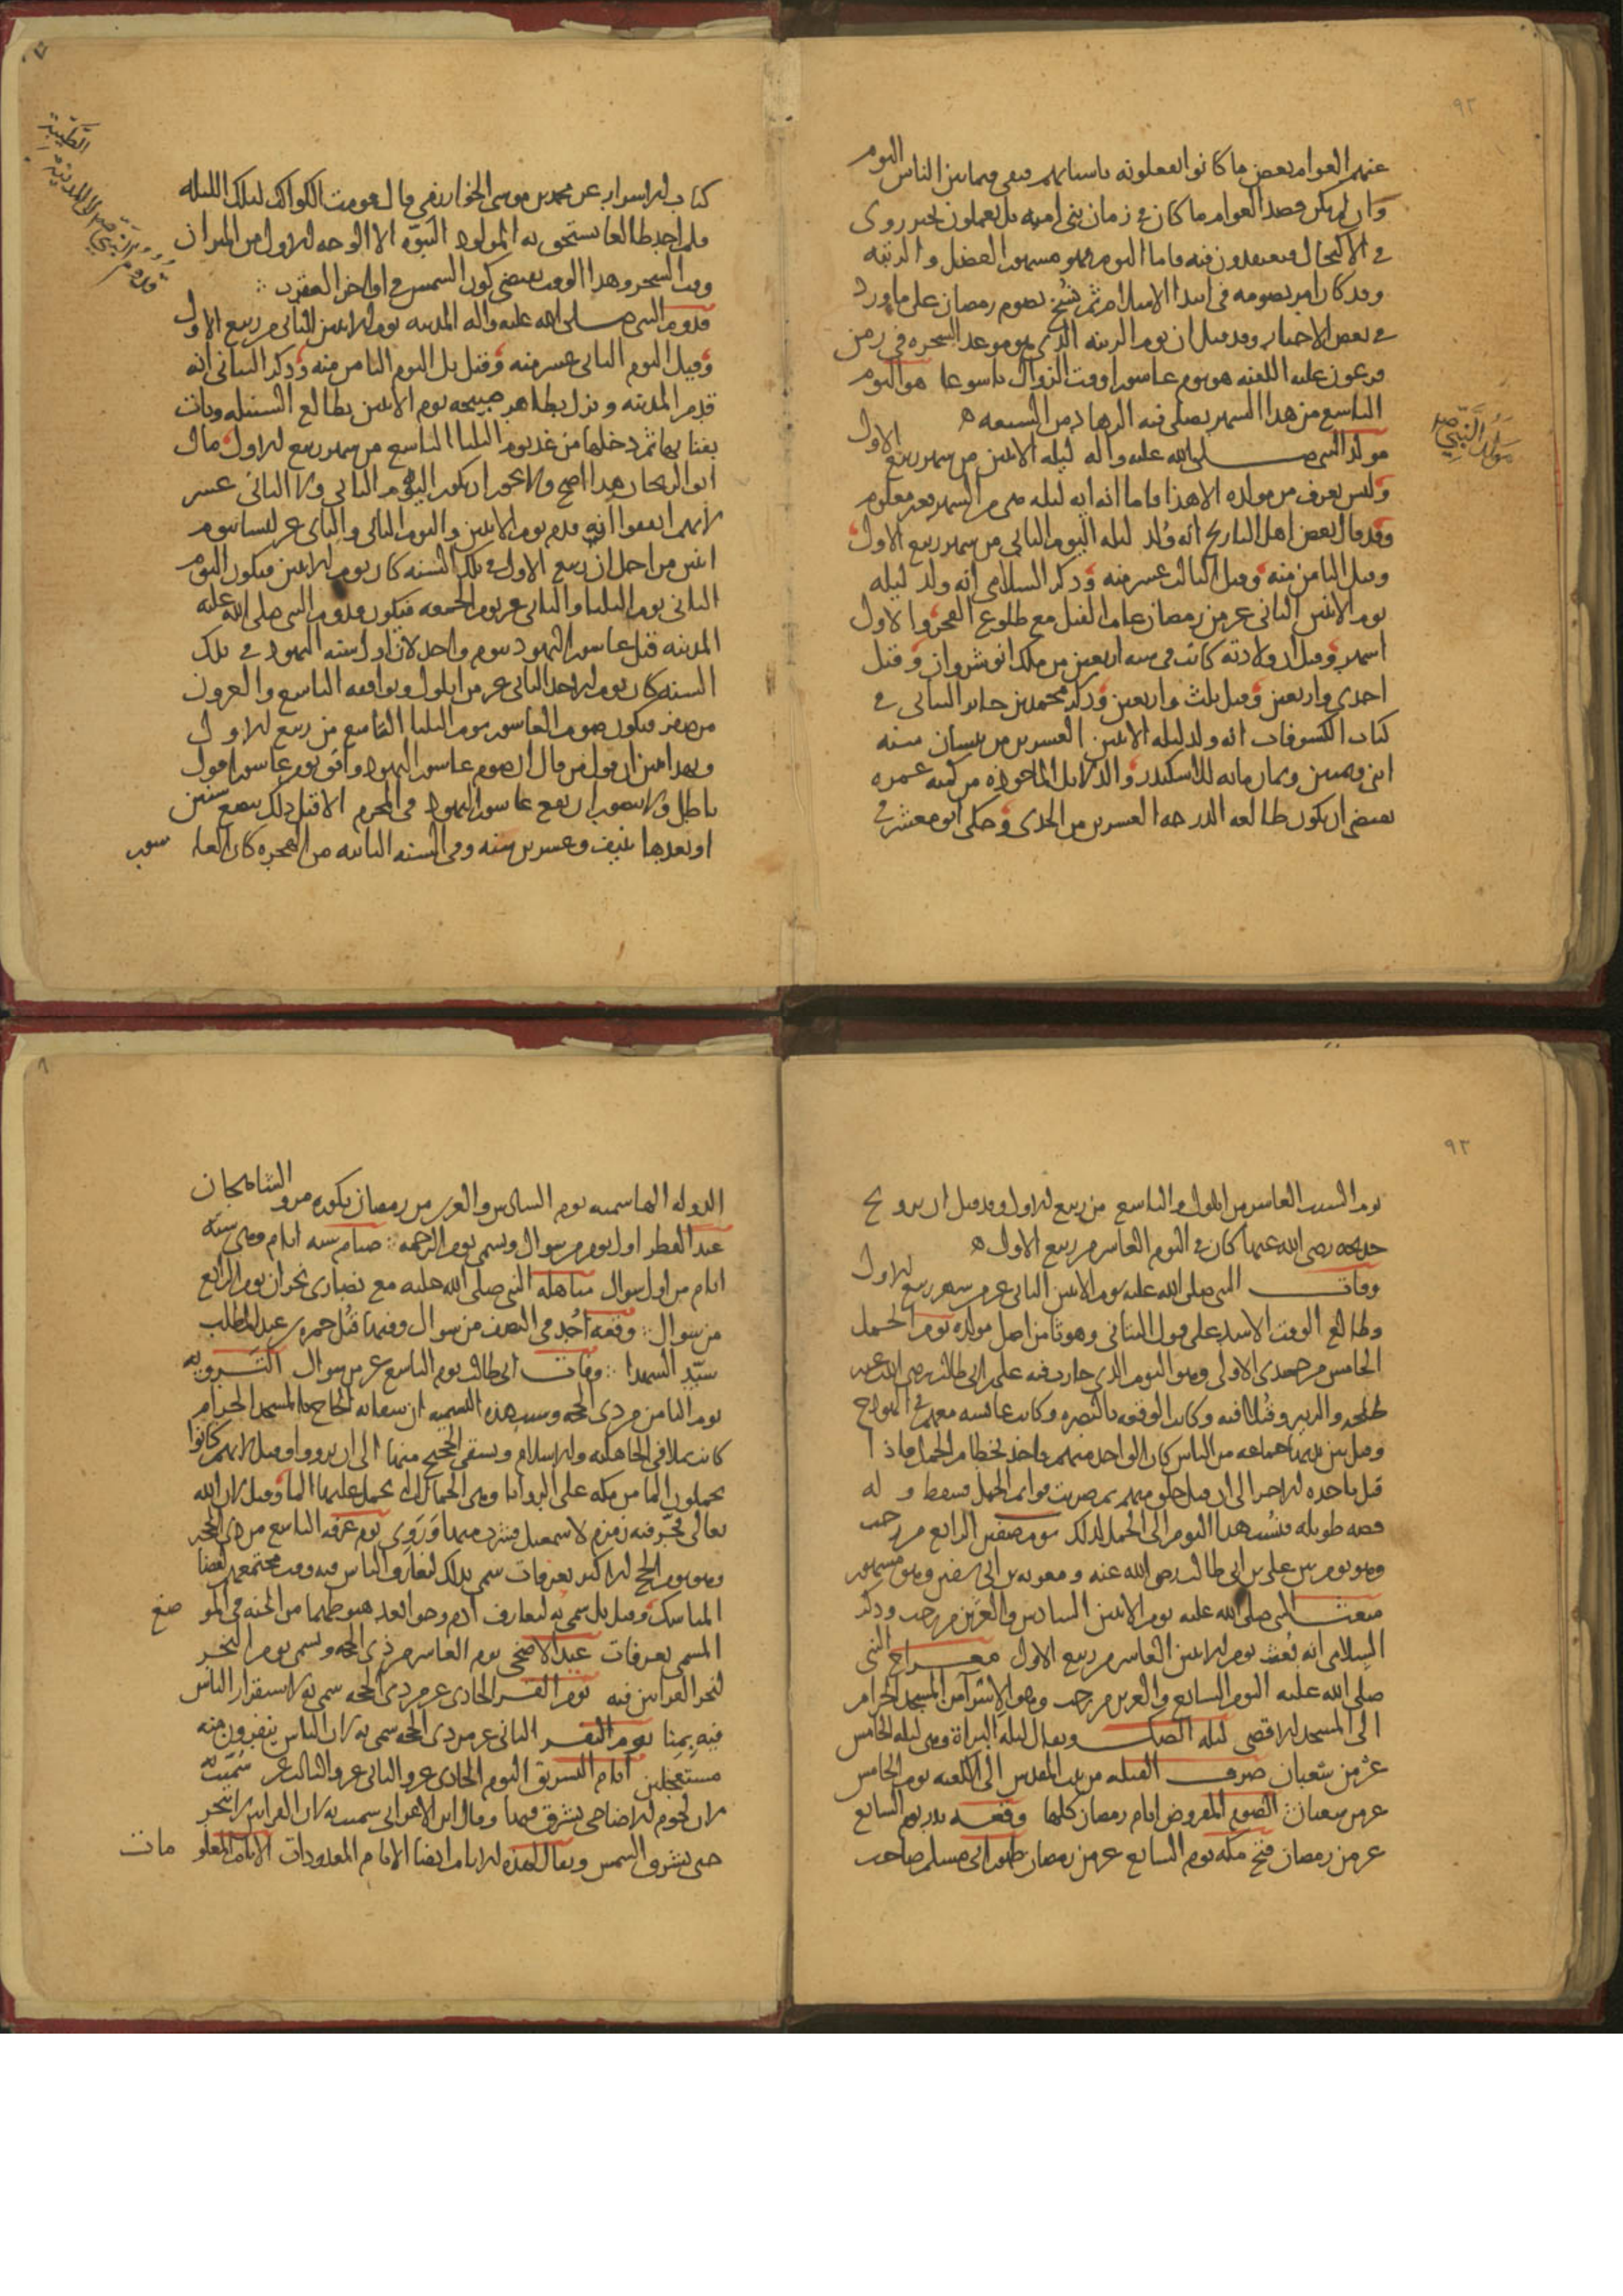 ٩٢
عنهم العوام بعض ما كانوا يفعلونه باسنانهم فبقى فيما بين الناس اليوم
وان لم يكن قصد العوام ما كان في زمان بني اميه بل يعملون لخبر روى
في الاكتحال فيعتقدون فيه فاما اليوم فهو مشهور الفضل والرتبه
وقد كان امر بصومه في ابتدا الاسلام ثم نسخ بصوم رمضان على ما ورد
في بعض الاخبار وقد قيل ان يوم الزينه الذي هو موعد السحره في زمن
فرعون عليه اللعنه هو يوم عاشورا وقت الزوال تاسوعا هو اليوم
التاسع من هذا الشهر يصلى فيه الزهاد من الشيعه ه
مولد النبي صلى الله عليه واله ليله الاثنين من شهر ربيع الاول
وليس يعرف من مولده الا هذا فاما انه ايه ليله هي من الشهر فغير معلوم
وقد قال بعض اهل التاريخ انه ولد ليله اليوم الثاني من شهر ربيع الاول
وقيل الثامن منه وقيل الثالث عشر منه وذكر السلامي انه ولد ليله
يوم الاثنين الثاني عشر من رمضان عام الفيل مع طلوع الفجر والاول
اشهر وقيل ان ولادته كانت في سنه اربعين من ملك انوشروان وقيل
احدى واربعين وقيل ثلث واربعين وذكر محمد بن جابر البتاني في
كتاب الكسوفات انه ولد ليله الاثنين العشرين من نيسان سنه
اثنين وثمنين وثمان مايه للاسكندر والدلايل الماخوذه من كميه عمره
تقتضي ان يكون طالعه الدرجه العشرين من الجدى وحكى ابو معشر في
مولد النبي صلم
كتاب الاسرار عن محمد بن موسى الخوارزمي قال قومت الكواكب لتلك الليله
فلم اجد طالعا يستحق به المولود النبوه الا الوجه الاول من الميزان
وقت السحر وهذا الوقت يقتضي كون الشمس في اواخر العقرب
قدوم النبي صلى الله عليه واله المدينه يوم الاثنين الثاني من ربيع الاول
وقيل اليوم الثاني عشر منه وقيل بل اليوم الثامن منه وذكر البتاني انه
قدم المدينه ونزل بظاهر صبيحه يوم الاثنين بطالع السنبله وبات
بفنايها ثم دخلها من غد يوم الثلثا التاسع من شهر ربيع الاول قال
ابو الريحان هذا اصح ولا يجوز ان يكون اليوم الثاني ولا الثاني عشر
لانهم اتفقوا انه قدم يوم الاثنين واليوم الثاني والثاني عشر ليسا بيوم
اثنين من اجل ان ربيع الاول في تلك السنه كان يوم الاثنين فيكون اليوم
الثاني يوم الثلثا والثاني عشر يوم الجمعه فيكون قدوم النبي صلى الله عليه
المدينه قبل عاشور اليهود بيوم واحد لان اول سنه اليهود في تلك
السنه كان يوم الاحد الثاني عشر من ايلول ويوافقه التاسع والعشرون
من صفر فيكون صوم العاشور يوم الثلثا التاسع من ربيع الاول
وبهذا يتبين ان قول من قال ان صوم عاشور اليهود وافق يوم عاشورا قول
باطل ولا يتصور ان يقع عاشور اليهود في المحرم الا قبل ذلك ببضع سنين
او بعدها بنيف وعشرين سنه وفي السنه الثانيه من الهجره كان العا
سور
قدوم النبي صلم الى المدينة الطيبة
٩٣
يوم السبت العاشر من ايلول والتاسع من ربيع الاول وقد قيل ان تزويج
خديجه رضى الله عنها كان في اليوم العاشر من ربيع الاول ه
وفات النبي صلى الله عليه يوم الاثنين الثاني عشر من شهر ربيع الاول
وطالع الوقت الاسد على قول البتاني وهو ثامن اصل مولده يوم الجمل
الخامس من جمدى الاولى وهو اليوم الذي حارب فيه على بن ابي طالب رضى الله عنه
طلحه والزبير وقتلا فيه وكانت الوقعه بالبصره وكانت عايشه معهم في الهودج
وقتل بين يديها جماعه من الناس كان الواحد منهم ياخذ بخطام الجمل فاذا
قتل ياخذه الاخر الى ان قتل خلق منهم ثم ضربت قوايم الجمل فسقط وله
قصه طويله فنسب هذا اليوم الى الجمل لذلك يوم صفين الرابع من رجب
وهو يوم بين على بن ابي طالب رضى الله عنه ومعويه بن ابي سفين وهو مشهور
مبعث النبي صلى الله عليه يوم الاثنين السادس والعشرين من رجب وذكر
السلامي انه بعث يوم الاثنين العاشر من ربيع الاول معراج النبي
صلى الله عليه اليوم السابع والعشرين من رجب وهو الاسرآ من المسجد الحرام
الى المسجد الاقصى ليله الصك ويقال ليله البراة وهى ليله الخامس
عشر من شعبان صرف القبله من بيت المقدس الى الكعبه يوم الخامس
عشر من شعبان الصوم المفروض ايام رمضان كلها وقعه بدر يوم السابع
عشر من رمضان فتح مكه يوم السابع عشر من رمضان ظهور ابي مسلم صاحب
٨
الدوله الهاشميه يوم السادس والعشرين من رمضان بكوره مرو الشاهجان
عيد الفطر اول يوم من شوال ويسمى يوم الرحمه صيام سته ايام وهى سته
ايام من اول شوال مباهله النبي صلى الله عليه مع نصارى نجران يوم الرابع
من شوال وقعه احد في النصف من شوال وفيها قتل حمزه بن عبد المطلب
سيد الشهدا وفات ابي طالب يوم السابع عشر من شوال الترويه
يوم الثامن من ذى الحجه وسبب هذه التسميه ان سقايه الحاج بالمسجد الحرام
كانت تملا في الجاهليه والاسلام ويستقى الحجيج منها الى ان يرووا وقيل لانهم كانوا
يحملون الما من مكه على الروايا وهى الجمال التي يحمل عليها الما وقيل لان الله
تعالى فجر فيه زمزم لاسمعيل فشرب منها وروي يوم عرفه التاسع من ذى الحجه
وهو يوم الحج الاكبر بعرفات سمى بذلك لتعارف الناس فيه وقت مجتمعهم لقضا
المناسك وقيل بل سمى به لتعارف ادم وحوا بعد هبوطهما من الجنه في المو
ضع
المسمى بعرفات عيد الاضحى يوم العاشر من ذى الحجه ويسمى يوم النحر
لنحر القرابين فيه يوم القر الحادى عشر من ذى الحجه سمى به لاستقرار الناس
فيه بمنا يوم النفر الثاني عشر من ذى الحجه سمى به لان الناس ينفرون منه
مستعجلين ايام التشريق اليوم الحادى عشر والثاني عشر والثالث عشر سميت به
لان لحوم الاضاحى تشرق فيها وقال ابن الاعرابي سميت به لان القرابين لا تنحر
حتى تشرق الشمس ويقال لهذه الايام ايضا الايام المعدودات الايام المعلو
مات